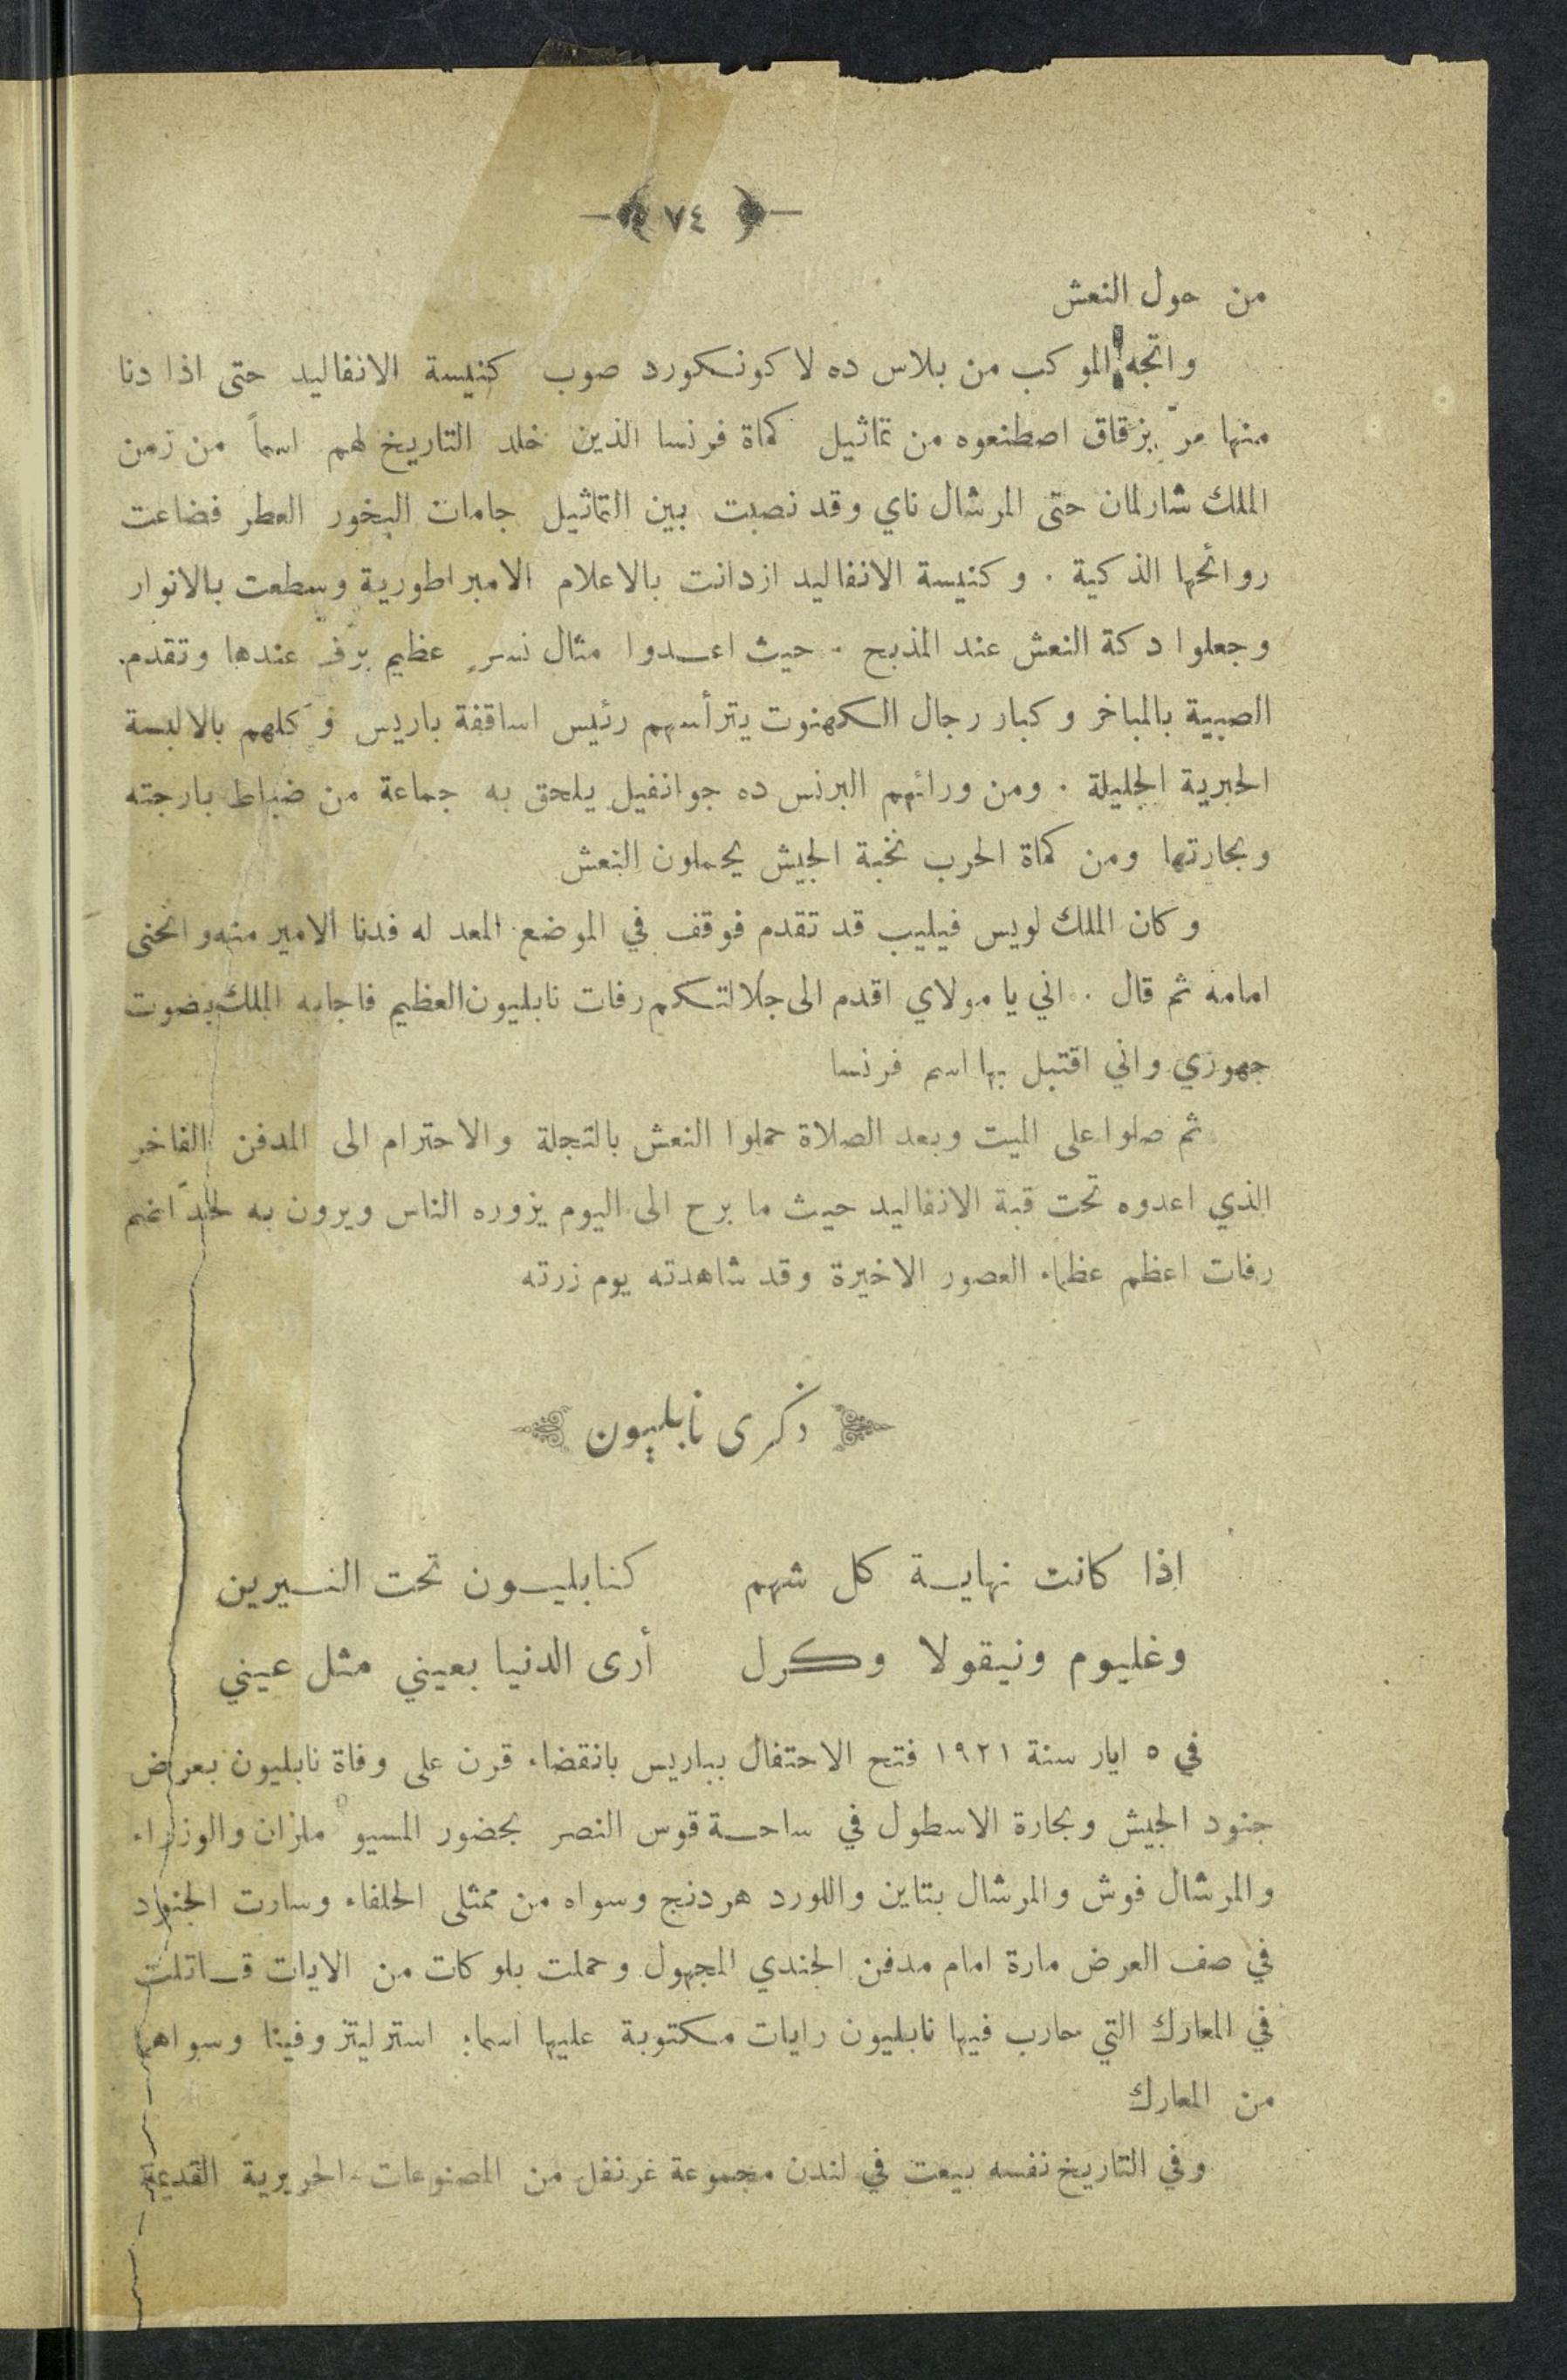 ٧٤
من حول النعش
واتجه الموكب من بلاس ده لا كونكورد صوب كنيسة الانفاليد حتى اذا دنا
منها مرّ بزقاق اصطنعوه من تماثيل كماة فرنسا الذين خلد التاريخ لهم اسماً من زمن
الملك شارلمان حتى المرشال ناي وقد نصبت بين التماثيل جامات البخور العطر فضاعت
روائحها الذكية . وكنيسة الانفاليد ازدانت بالاعلام الامبراطورية وسطعت بالانوار
وجعلوا دكة النعش عند المذبح . حيث اعدوا مثال نسرٍ عظيم برّف عندها وتقدم
الصبية بالمباخر وكبار رجال الكهنوت يترأسهم رئيس اساقفة باريس وكلهم بالالبسة
الحبرية الجليلة . ومن ورائهم البرنس ده جوانفيل يلحق به جماعة من ضباط بارجته
وبحارتها ومن كماة الحرب نخبة الجيش يحملون النعش
وكان الملك لويس فيليب قد تقدم فوقف في الموضع المعد له فدنا الامير منه وانحنى
امامه ثم قال . اني يا مولاي اقدم الى جلالتكم رفات نابليون العظيم فاجابه الملك بصوت
جهوري واني اقتبل بها اسم فرنسا
ثم صلوا على الميت وبعد الصلاة حملوا النعش بالتجلة والاحترام الى المدفن الفاخر
الذي اعدوه تحت قبة الانفاليد حيث ما برح الى اليوم يزوره الناس ويرون به لحداً ضم
رفات اعظم عظماء العصور الاخيرة وقد شاهدته يوم زرته
ذكرى نابليون
اذا كانت نهاية كل شهم كنابليون تحت النسيرين
وغليوم ونيقولا وكرل أرى الدنيا بعيني مثل عيني
في ٥ ايار سنة ١٩٢١ فتح الاحتفال بباريس بانقضاء قرن على وفاة نابليون بعرض
جنود الجيش وبحارة الاسطول في ساحة قوس النصر بحضور المسيو ملزان والوزراء
والمرشال فوش والمرشال بتاين واللورد هردنج وسواه من ممثلي الحلفاء وسارت الجنود
في صف العرض مارة امام مدفن الجندي المجهول وحملت بلوكات من الايات قاتلت
في المعارك التي حارب فيها نابليون رايات مكتوبة عليها اسماء استرليتز وفينا وسواهما
من المعارك
وفي التاريخ نفسه بيعت في لندن مجموعة غرنفل من المصنوعات الحريرية القديمة